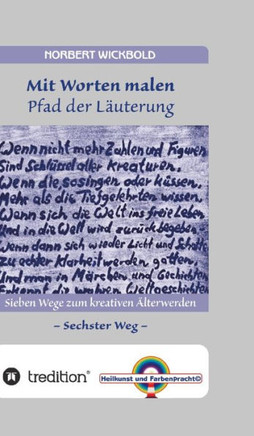 NORBERT WICKBOLD
Mit Worten malen
Pfad der Läuterung
Wenn nicht mehr Zahlen und Figuren
Sind Schlüssel aller Kreaturen,
Wenn die, so singen oder küssen,
Mehr als die Tiefgelehrten wissen,
Wenn sich die Welt ins freie Leben,
Und in die Welt wird zurück begeben,
Wenn dann sich wieder Licht und Schatten
zu echter Klarheit werden gatten,
Und man in Märchen und Gechichten
Erkennt die wahren Weltgeschichten
Sieben Wege zum kreativen Älterwerden
– Sechster Weg –
tredition®
Heilkunst und Farbenpracht©